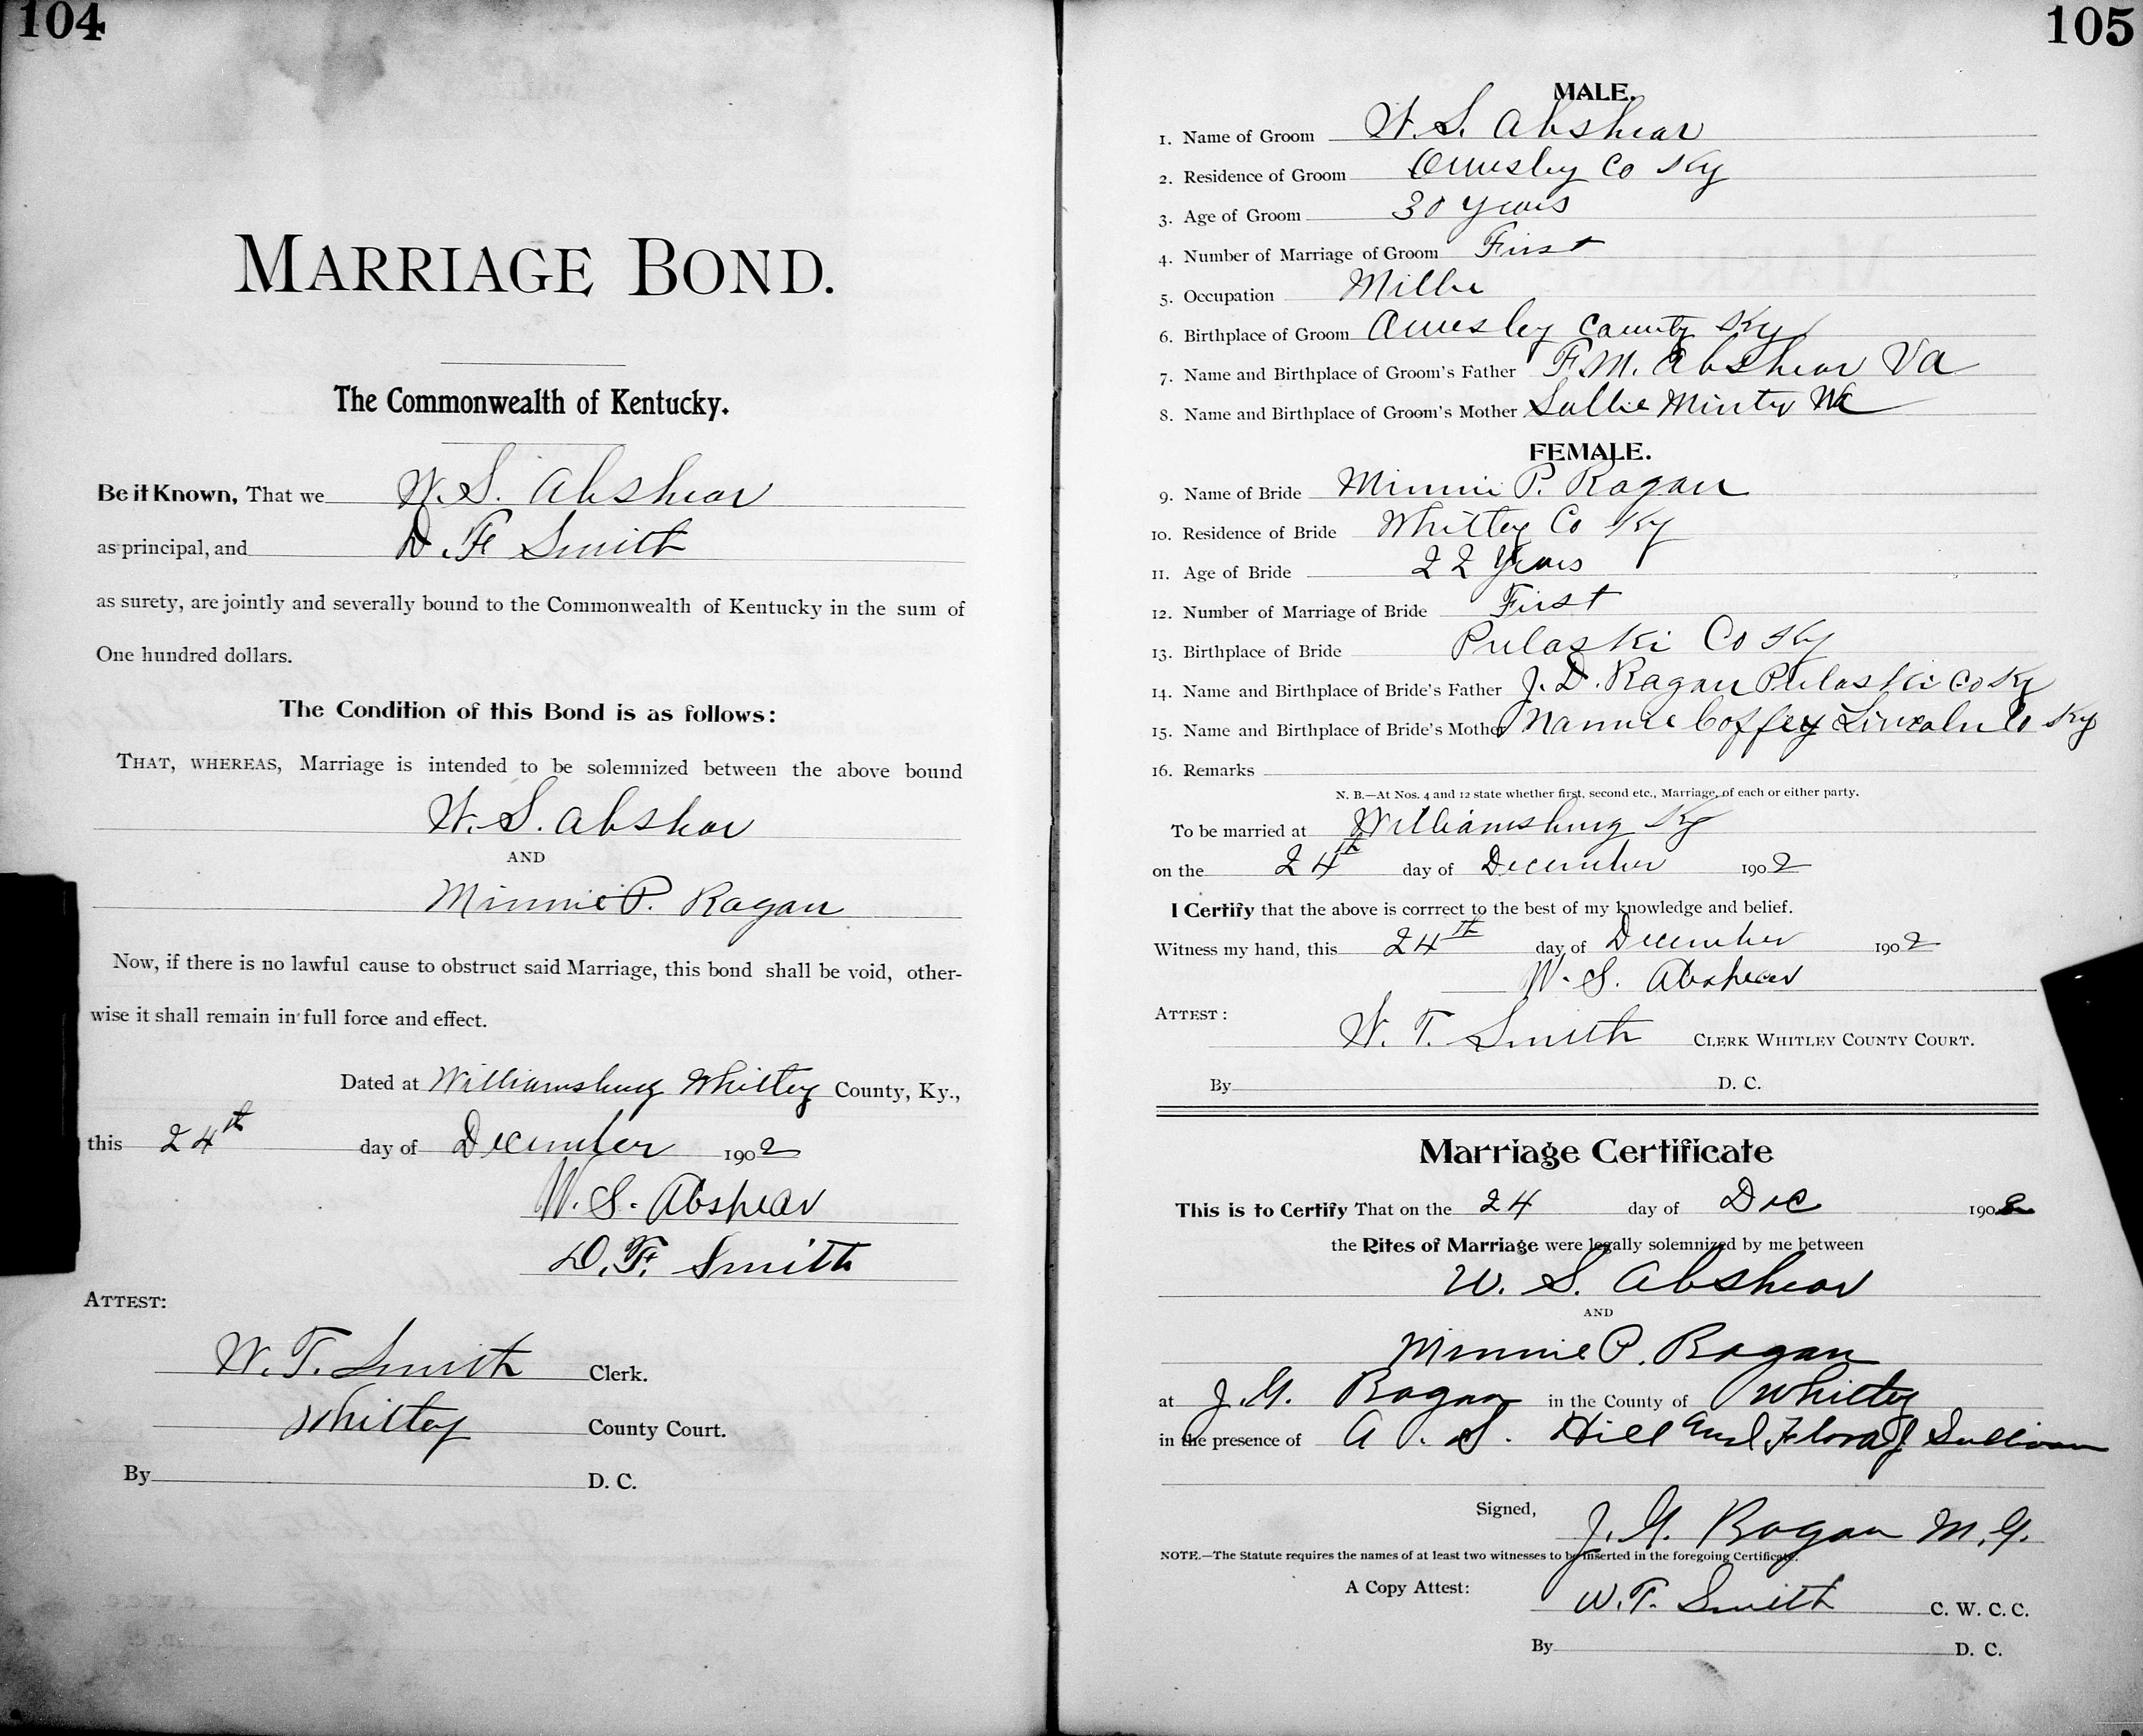 104
MARRIAGE BOND.
The Commonwealth of Kentucky.
Be it Known, That we W. S. Abshear
as principal, and D. F. Smith
as surety, are jointly and severally bound to the Commonwealth of Kentucky in the sum of
One hundred dollars.
The Condition of this Bond is as follows:
THAT, WHEREAS, Marriage is intended to be solemnized between the above bound
W. S. Abshear
AND
Minnie P. Ragan
Now, if there is no lawful cause to obstruct said Marriage, this bond shall be void, other-
wise it shall remain in full force and effect.
Dated at Williamsburg Whitley County, Ky.,
this 24th day of December 1902
W. S. Abshear
D. F. Smith
ATTEST:
W. T. Smith Clerk.
Whitley County Court.
By D. C.
105
MALE.
1. Name of Groom W. S. Abshear
2. Residence of Groom Owsley Co Ky
3. Age of Groom 30 years
4. Number of Marriage of Groom First
5. Occupation
6. Birthplace of Groom Owsley County Ky
7. Name and Birthplace of Groom's Father F. M. Abshear Va
8. Name and Birthplace of Groom's Mother Sallie Minter
FEMALE.
9. Name of Bride Minnie P. Ragan
10. Residence of Bride Whitley Co Ky
11. Age of Bride 22 Years
12. Number of Marriage of Bride First
13. Birthplace of Bride Pulaski Co Ky
14. Name and Birthplace of Bride's Father J. D. Ragan Pulaski Co Ky
15. Name and Birthplace of Bride's Mother Nannie Coffey Lincoln Co Ky
16. Remarks
N. B.—At Nos. 4 and 12 state whether first, second etc., Marriage, of each or either party.
To be married at Williamsburg Ky
on the 24th day of December 1902
I Certify that the above is corrrect to the best of my knowledge and belief.
Witness my hand, this 24th day of December 1902
W. S. Abshear
ATTEST:
W. T. Smith CLERK WHITLEY COUNTY COURT.
By D. C.
Marriage Certificate
This is to Certify That on the 24 day of Dec 1902
the Rites of Marriage were legally solemnized by me between
W. S. Abshear
AND
Minnie P. Ragan
at J. G. Ragan in the County of Whitley
in the presence of A. S. Hill and Flora J Sullivan
Signed, J. G. Ragan M. G.
NOTE.—The Statute requires the names of at least two witnesses to be inserted in the foregoing Certificate.
A Copy Attest:
W. T. Smith C. W. C. C.
By D. C.